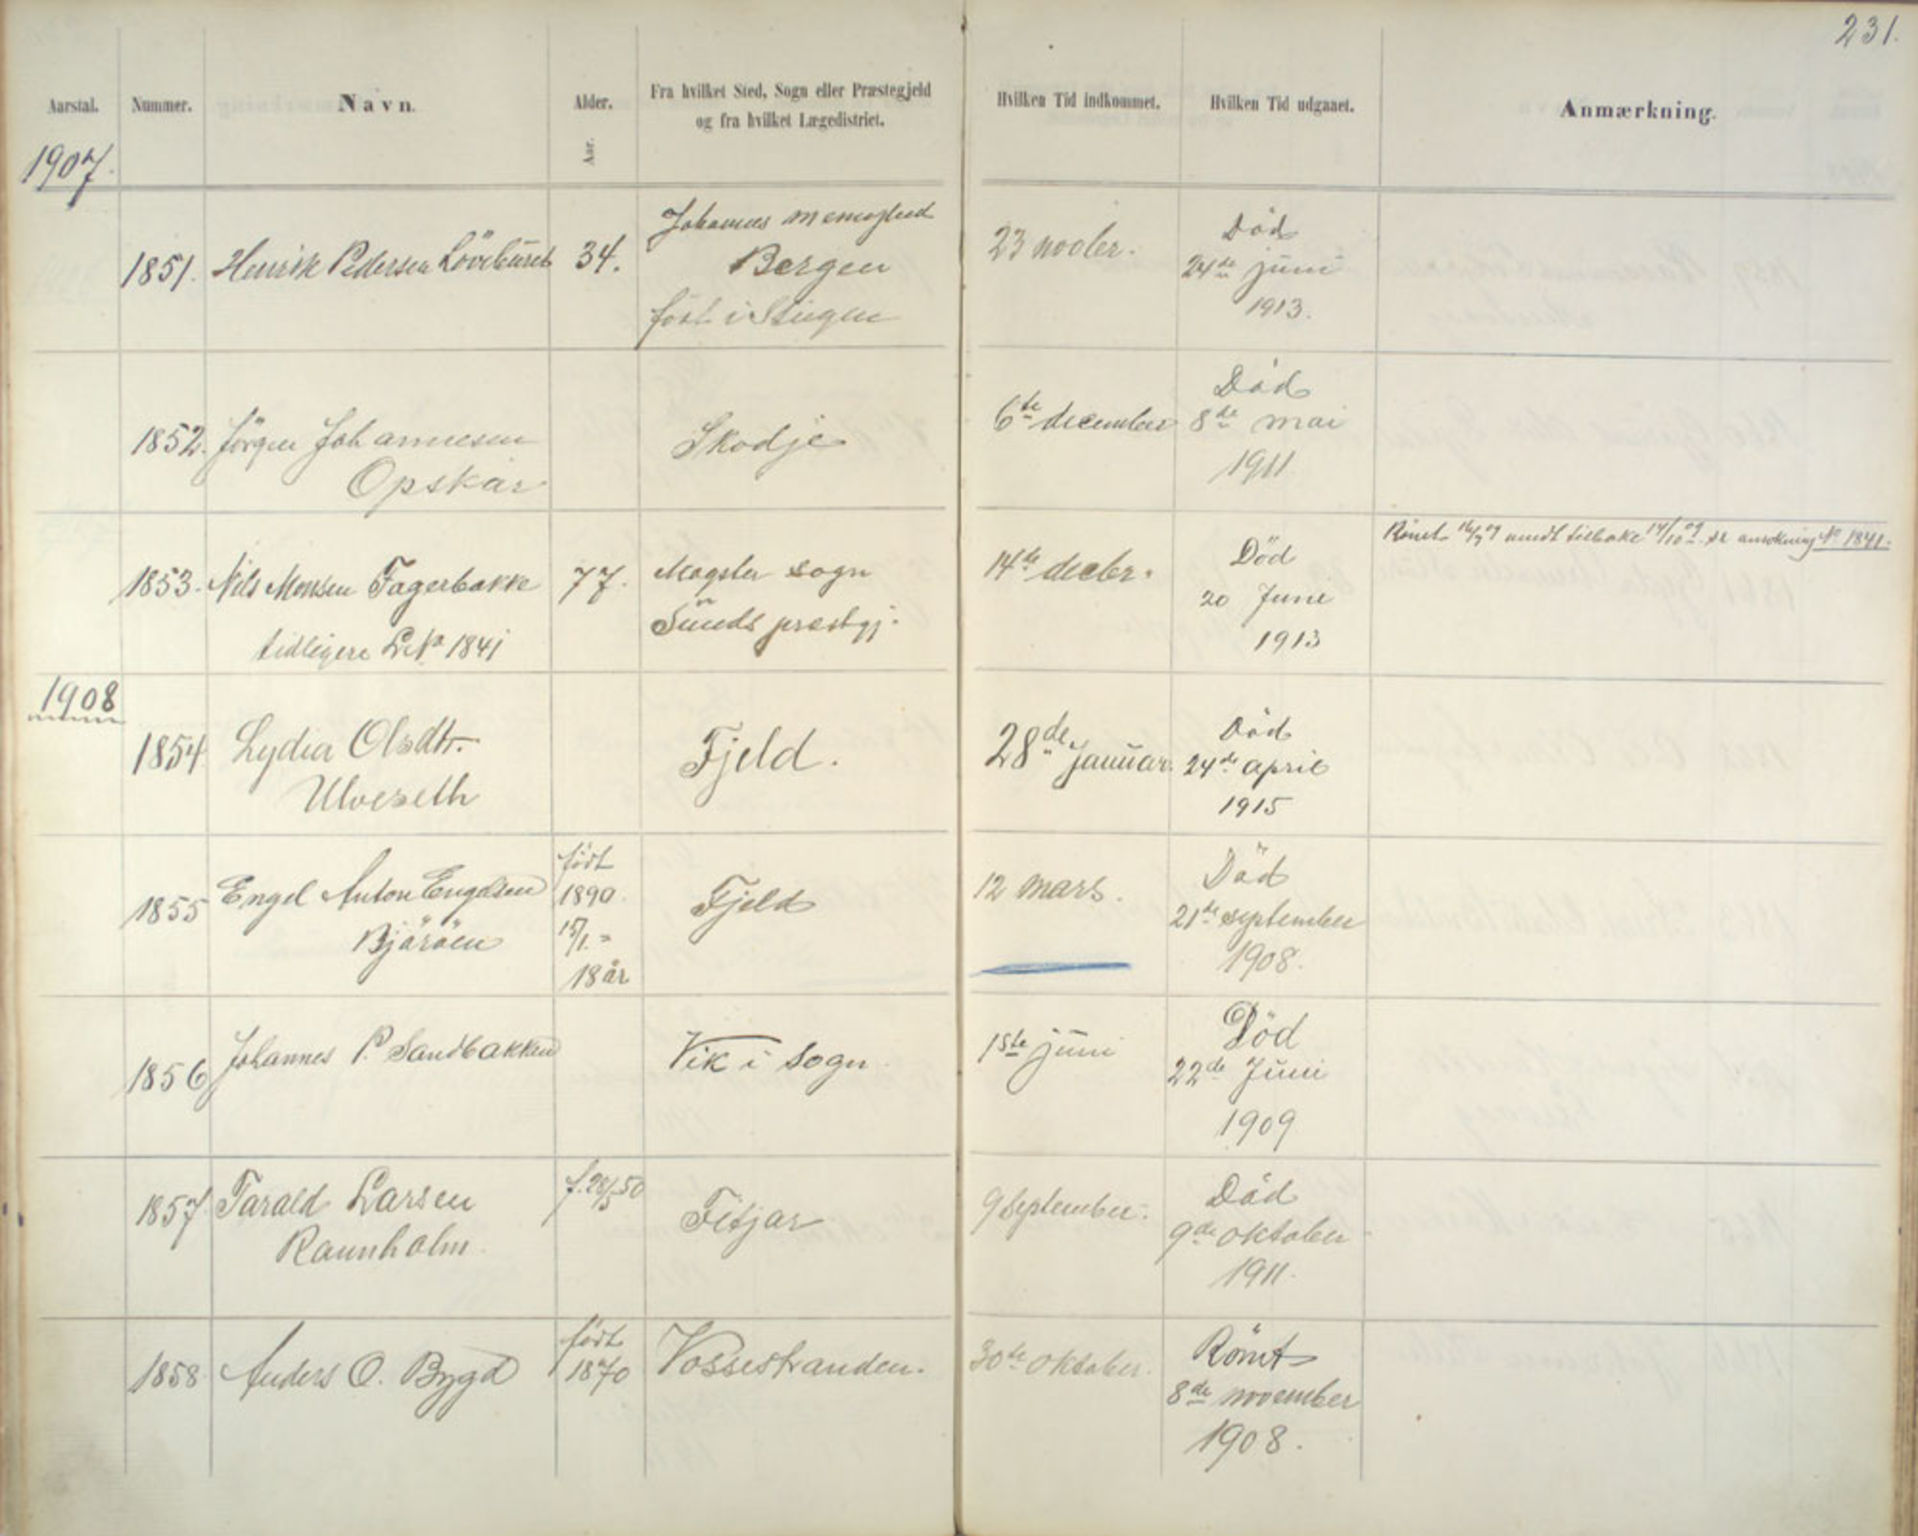 231.
Aarstal. Nummer. Navn. Alder. Fra hvilket Sted, Sogn eller Præstegjeld Hvilken Tid indkommet. Hvilken Tid udgaaet. Anmærkning.
Aar. og fra hvilket Lægedistrict.
1907.
Johannes menighed Död
1851. Henrik Pedersen 34. Bergen 23 novbr. 24de juni
föd i 1913.
Död
1852. Jörgen Johannesen Skodje 6te december 8de mai
Opskar 1911
Römt 16/7 09 tilbake 14/10 09 se anmerkning No 1841.
1853. Nils Monsen Fagerbakke 77. Mogster sogn 14de decbr. Död
Sunds prestgj. 20 Juni
tidligere L No 1841 1913
1908
1854 Lydia Olsdtr. Fjeld. 28de Januar Död
Ulveseth 24de april
1915
1855 Engel Anton Engelsen födt Fjeld 12 mars. Död
Björöen 1890 21de september
15/1 = 1908.
18 år
1856 Johannes P. Sandbakken Vik i Sogn 1ste juni Död
22de Juni
1909
1857 Tarald Larsen f. 28/5 50 Fitjar 9 September. Död
Raunholm 9de oktober
1911.
1858 Anders O. Bygd födt Vossestranden. 30te oktober. Römt
1870 8de november
1908.